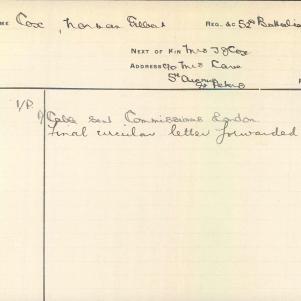 ME Cox, Norman Gilbert REG. &C 52nd Battalion
NEXT OF KIN Mrs J J Cox
ADDRESS c/o Mrs Cave
5th Avenue
St Peters
I/P.
Cable sent Commissions London
Final circular letter forwarded